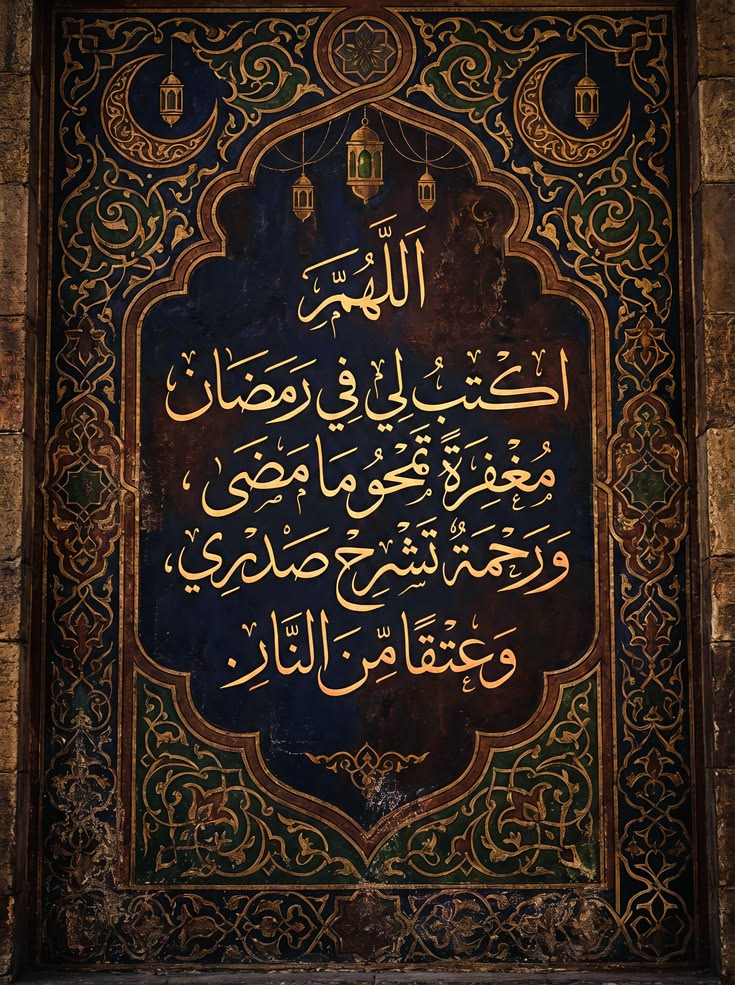 اَللَّهُمَّرِ
اكْتبُ لِي فِي رَمَضَان
مُغْفِرَةً تَمْحُو مَا مَضَى،
وَرَحْمَةٌ تَشْرِحْ صَدْرِي،
وَعِتْقًا مِّنَ النَّارِ.